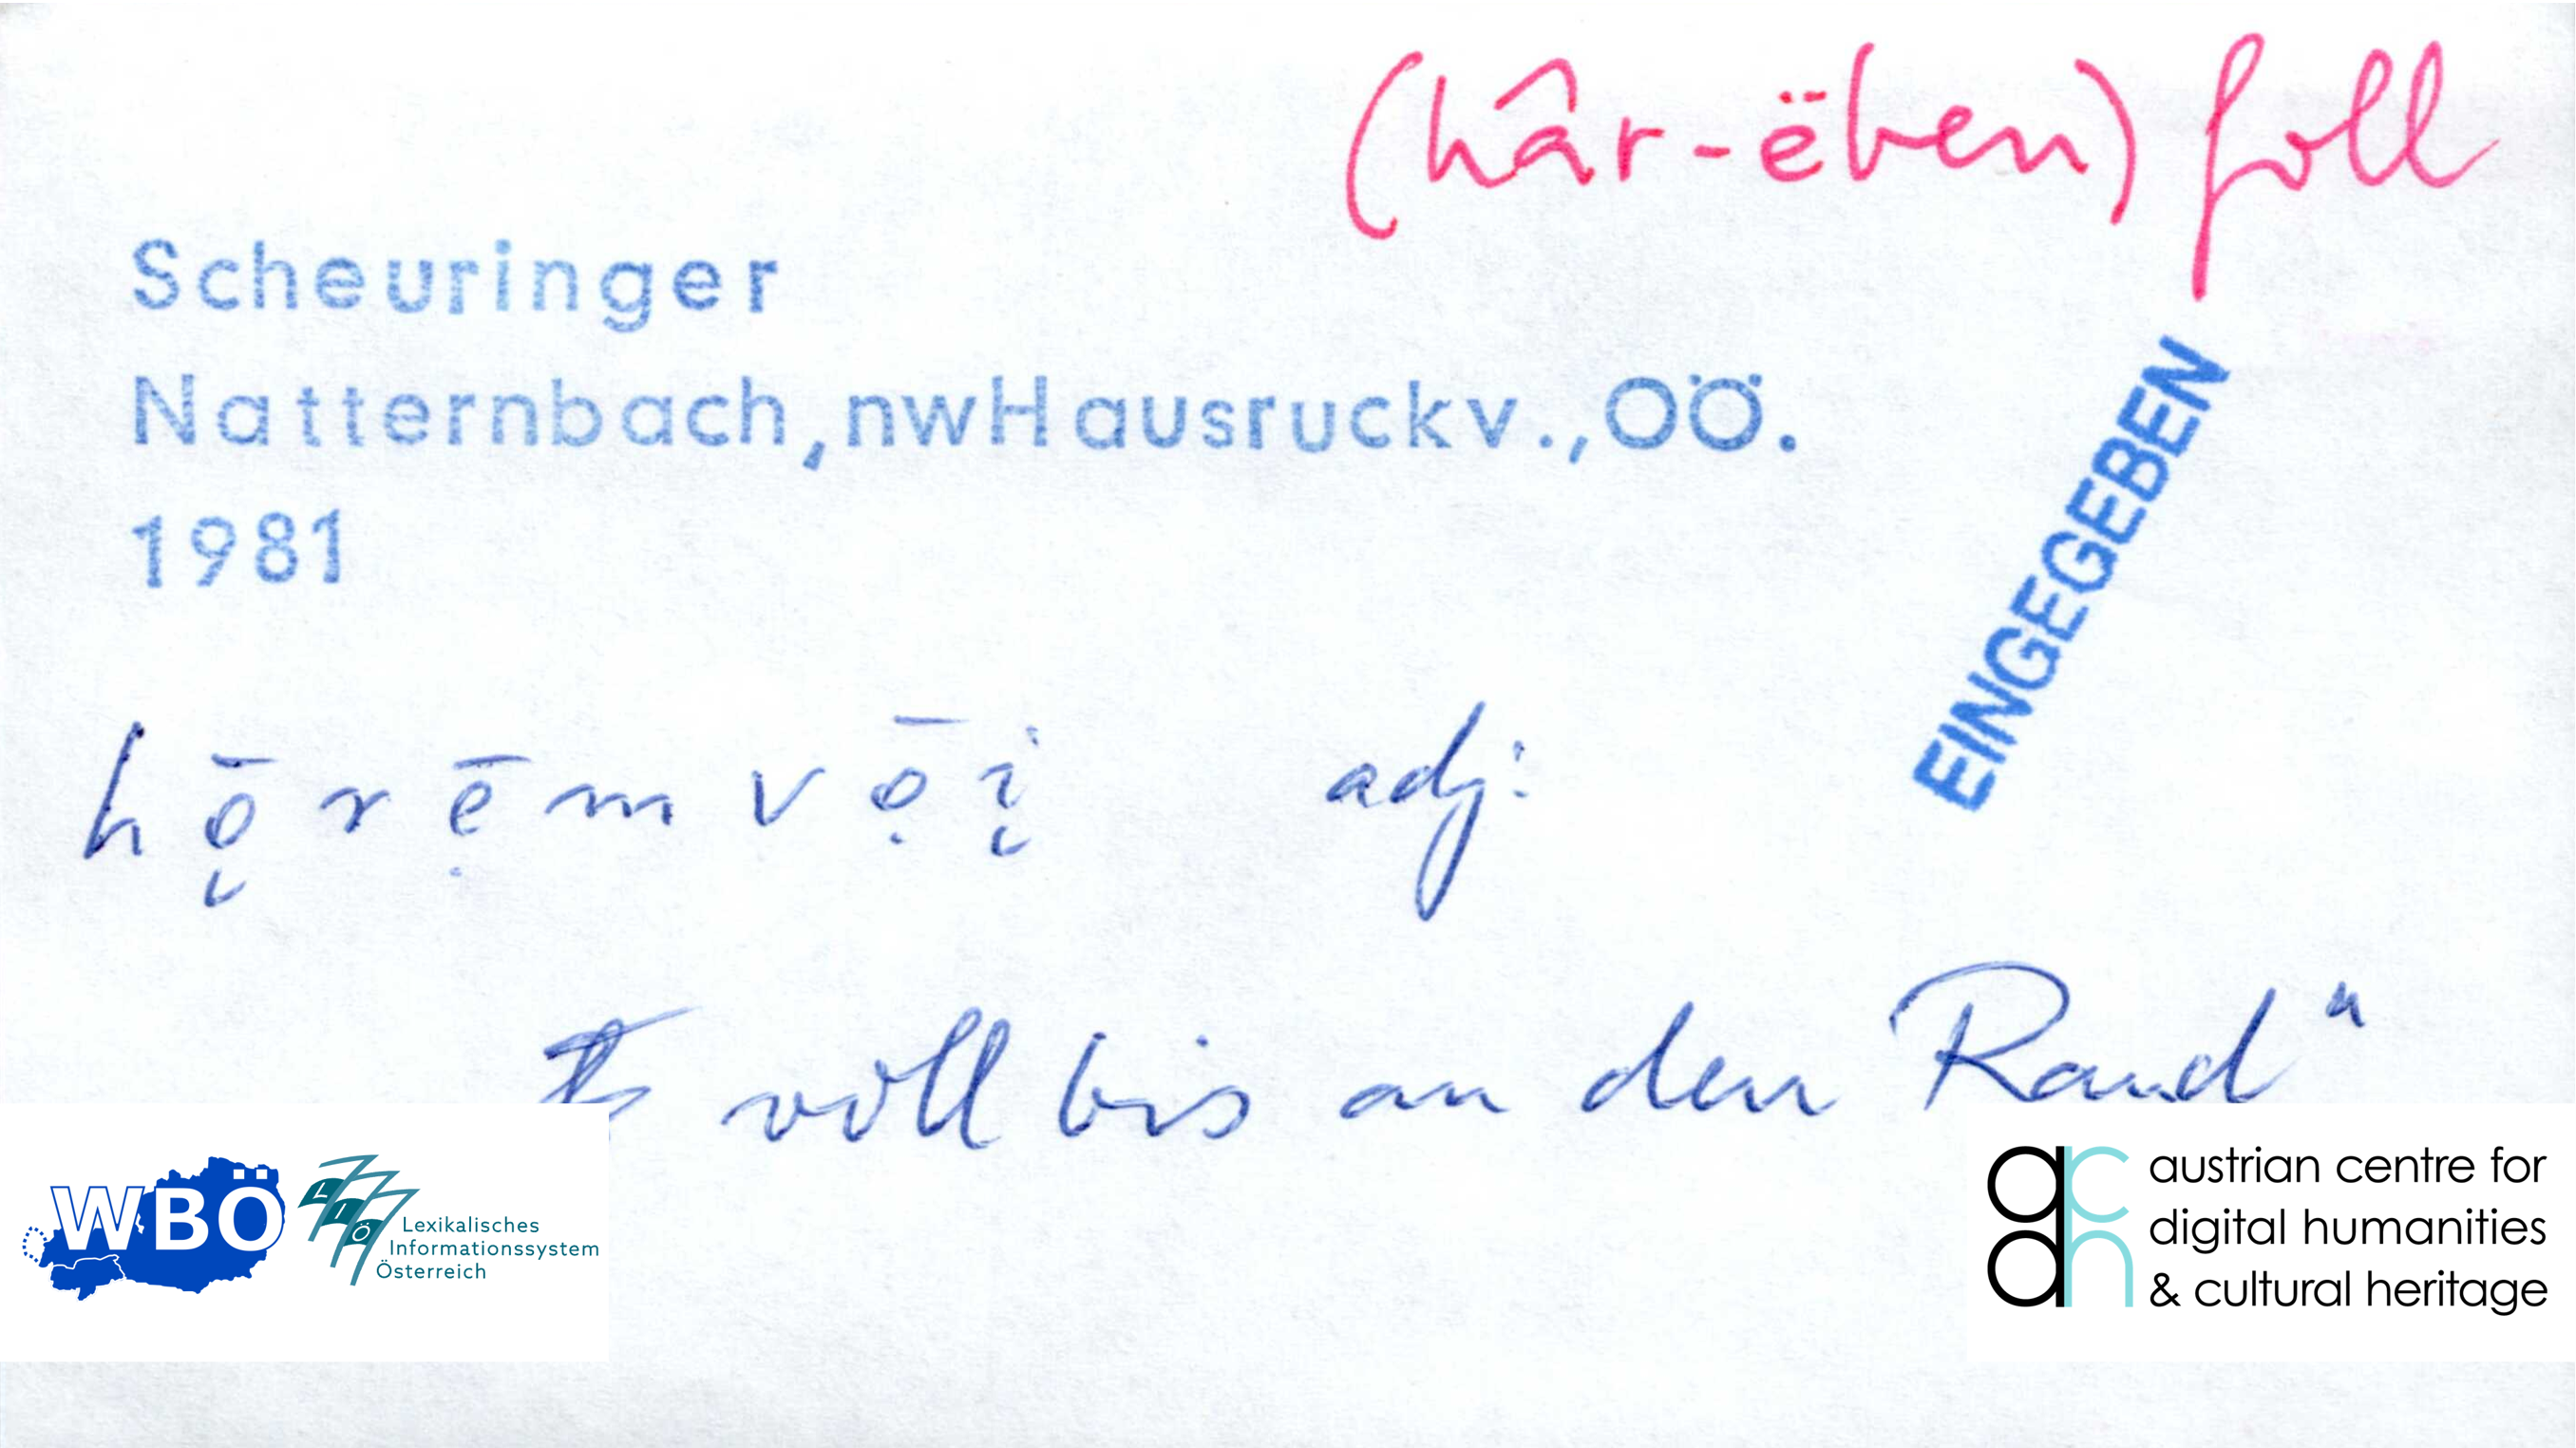 (hâr-ëben) foll
Scheuringer
Natternbach, nwHausruckv., OÖ.
1981
EINGEGEBEN
hǭ̨rẹ̄mvọ̄i̯ adj:
voll bis an den Rand"
WBÖ
LIÖ
Lexikalisches
Informationssystem
Österreich
acdh
austrian centre for
digital humanities
& cultural heritage